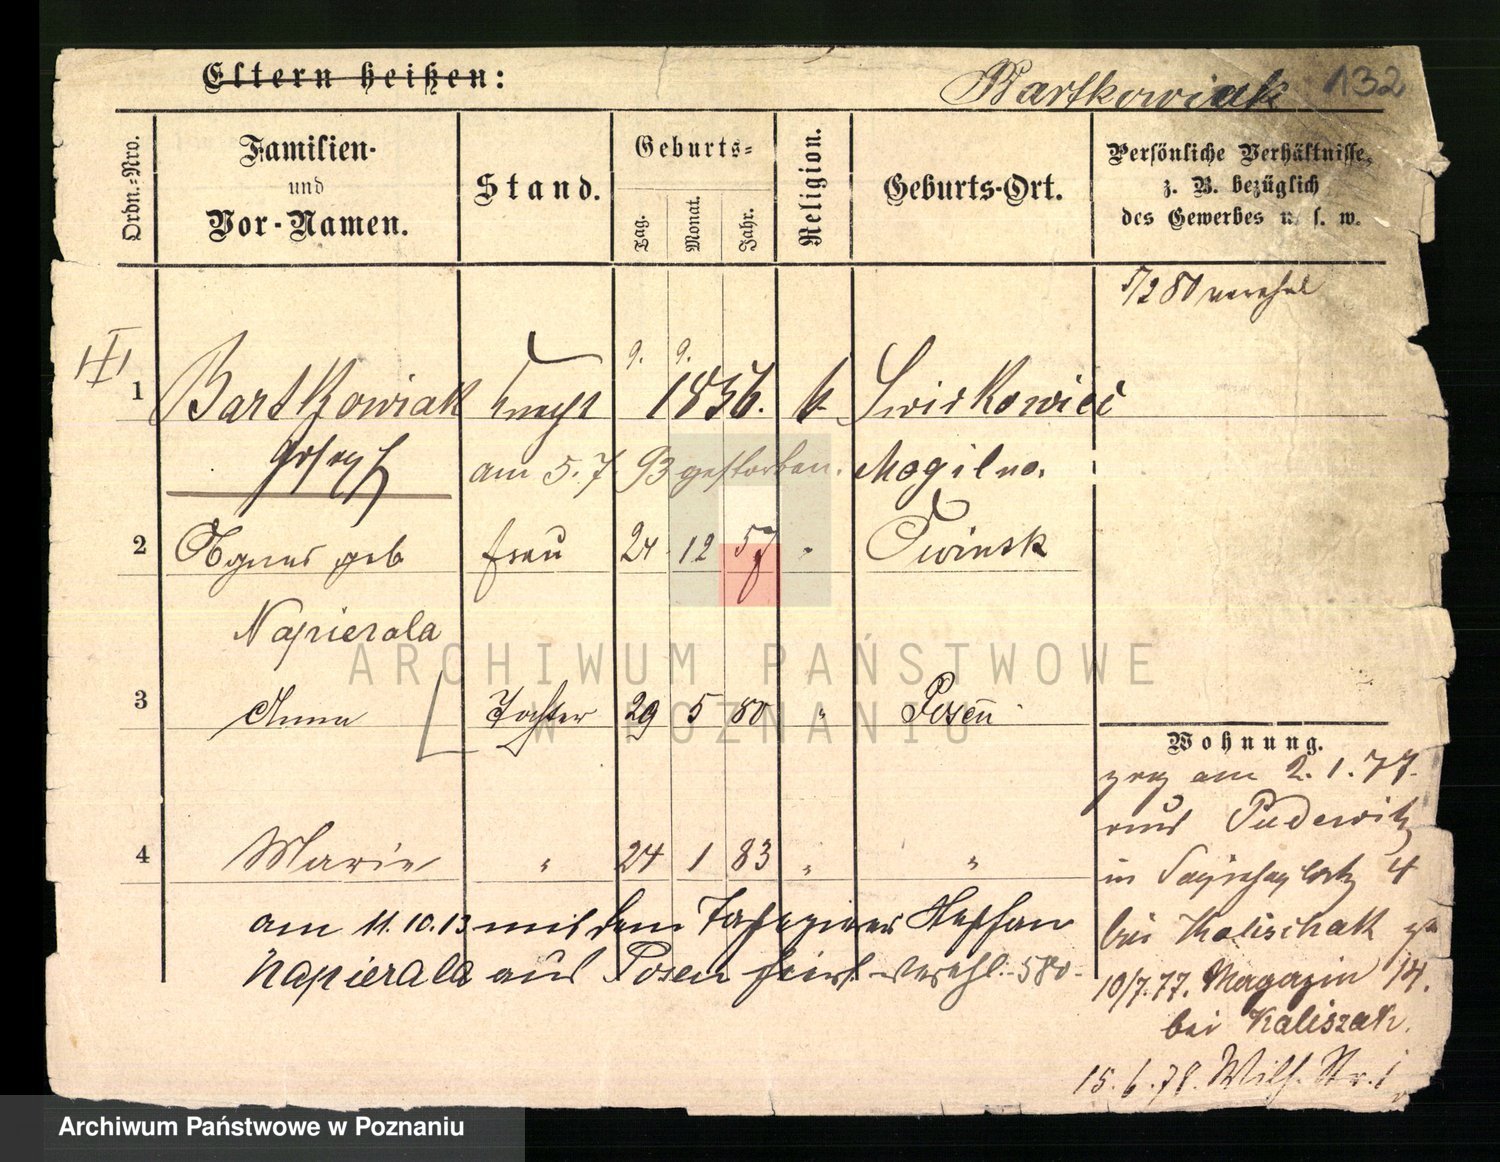 Eltern heißen:
Bartkowiak 132
Ordn.-Nro.
Familien-
und
Vor-Namen.
Stand.
Geburts-
Tag.
Monat.
Jahr.
Religion.
Geburts-Ort.
Persönliche Verhältnisse,
z. B. bezüglich
des Gewerbes u. s. w.
5/2 80 verehel
1 Bartkowiak Knecht 9. 9. 1836. k.
Joseph am 5. 7. 93 gestorben. Mogilno.
2 Agnes geb Frau 24 12 57 "
Napierala
3 Anna Tochter 29 5 80 " Posen
4 Marie " 24 1 83 " "
am 11.10.13 mit dem Tapezierer Stephan
Napierala aus Posen hier verehl. 580.
Wohnung.
zog am 2. 1. 77.
aus Pudewitz
in 4
bei Kalischak
10/7.77. Magazin 14.
bei Kaliszak.
15.6.78. Wilh. Str. 1
ARCHIWUM PAŃSTWOWE
W POZNANIU
Archiwum Państwowe w Poznaniu